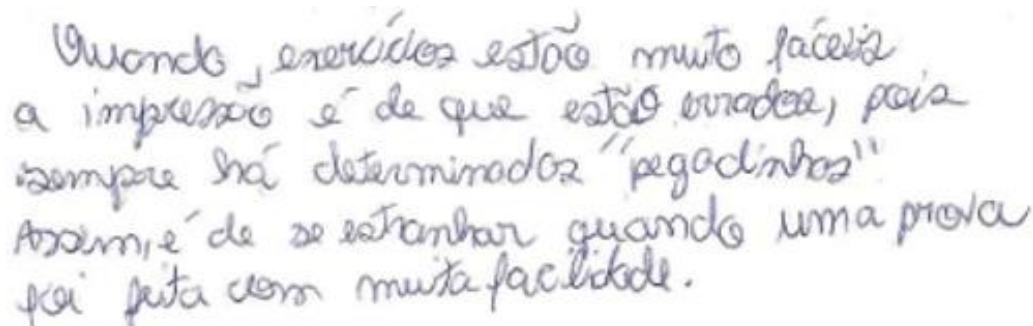 Quando, exercícios estão muito fáceis
a impressão é de que estão errados, pois
sempre há determinados "pegadinhas"
Assim, é de se estranhar quando uma prova
foi feita com muita facilidade.